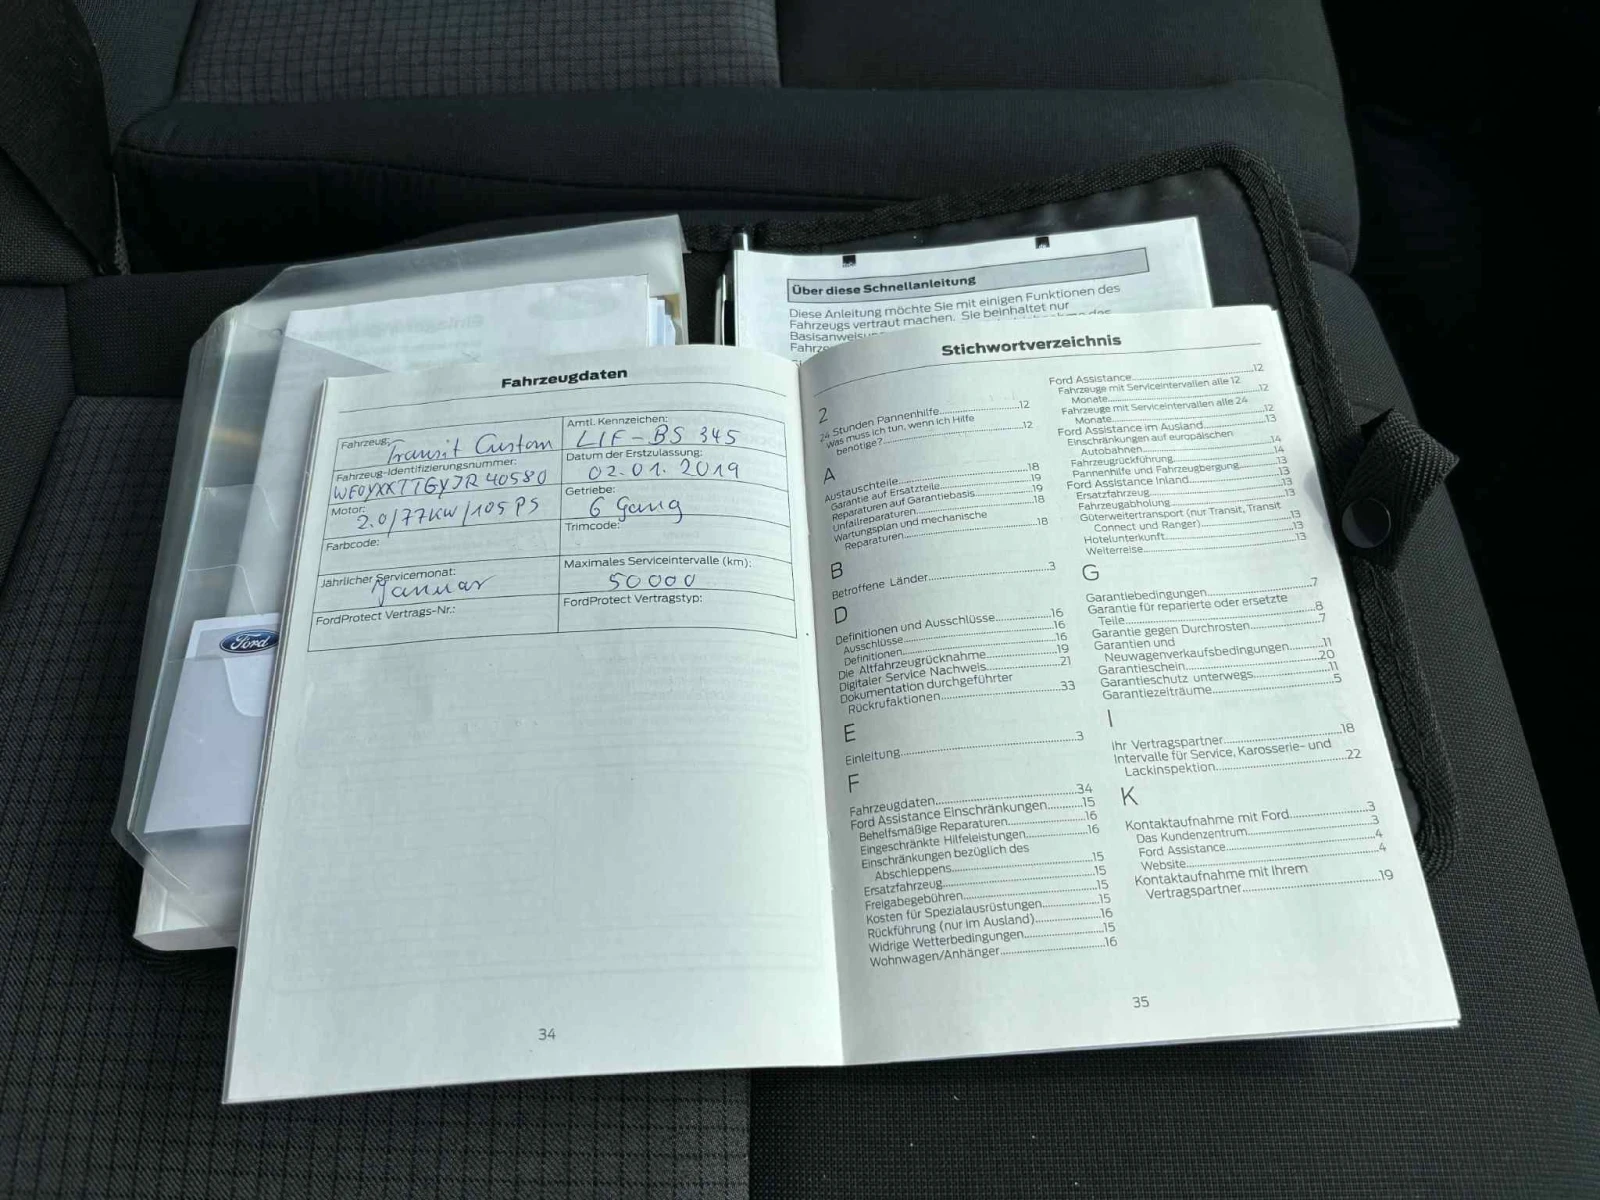 Über diese Schnellanleitung
Diese Anleitung möchte Sie mit einigen Funktionen des
Fahrzeugs vertraut machen. Sie beinhaltet nur
Ford
Fahrzeugdaten
Fahrzeug: Transit Custom
Amtl. Kennzeichen: LIF-BS 345
Fahrzeug-Identifizierungsnummer: WF0YXXTTGYJR40580
Datum der Erstzulassung: 02.01.2019
Motor: 2.0/77KW/105PS
Getriebe: 6 Gang
Farbcode:
Trimcode:
Jährlicher Servicemonat: Januar
Maximales Serviceintervalle (km): 50000
FordProtect Vertrags-Nr.:
FordProtect Vertragstyp:
34
Stichwortverzeichnis
2
24 Stunden Pannenhilfe...12
Was muss ich tun, wenn ich Hilfe
benötige?...12
A
Austauschteile...18
Garantie auf Ersatzteile...19
Reparaturen auf Garantiebasis...19
Unfallreparaturen...18
Wartungsplan und mechanische
Reparaturen...18
B
Betroffene Länder...3
D
Definitionen und Ausschlüsse...16
Ausschlüsse...16
Definitionen...16
Die Altfahrzeugrücknahme...19
Digitaler Service Nachweis...21
Dokumentation durchgeführter
Rückrufaktionen...33
E
Einleitung...3
F
Fahrzeugdaten...34
Ford Assistance Einschränkungen...15
Behelfsmäßige Reparaturen...16
Eingeschränkte Hilfeleistungen...16
Einschränkungen bezüglich des
Abschleppens...15
Ersatzfahrzeug...15
Freigabegebühren...15
Kosten für Spezialausrüstungen...15
Rückführung (nur im Ausland)...16
Widrige Wetterbedingungen...15
Wohnwagen/Anhänger...16
Ford Assistance...12
Fahrzeuge mit Serviceintervallen alle 12
Monate...12
Fahrzeuge mit Serviceintervallen alle 24
Monate...12
Ford Assistance im Ausland...13
Einschränkungen auf europäischen
Autobahnen...14
Fahrzeugrückführung...14
Pannenhilfe und Fahrzeugbergung...13
Ford Assistance Inland...13
Ersatzfahrzeug...13
Fahrzeugabholung...13
Güterweitertransport (nur Transit, Transit
Connect und Ranger)...13
Hotelunterkunft...13
Weiterreise...13
G
Garantiebedingungen...7
Garantie für reparierte oder ersetzte
Teile...8
Garantie gegen Durchrosten...7
Garantien und
Neuwagenverkaufsbedingungen...11
Garantieschein...20
Garantieschutz unterwegs...11
Garantiezeiträume...5
I
Ihr Vertragspartner...18
Intervalle für Service, Karosserie- und
Lackinspektion...22
K
Kontaktaufnahme mit Ford...3
Das Kundenzentrum...3
Ford Assistance...4
Website...4
Kontaktaufnahme mit Ihrem
Vertragspartner...19
35